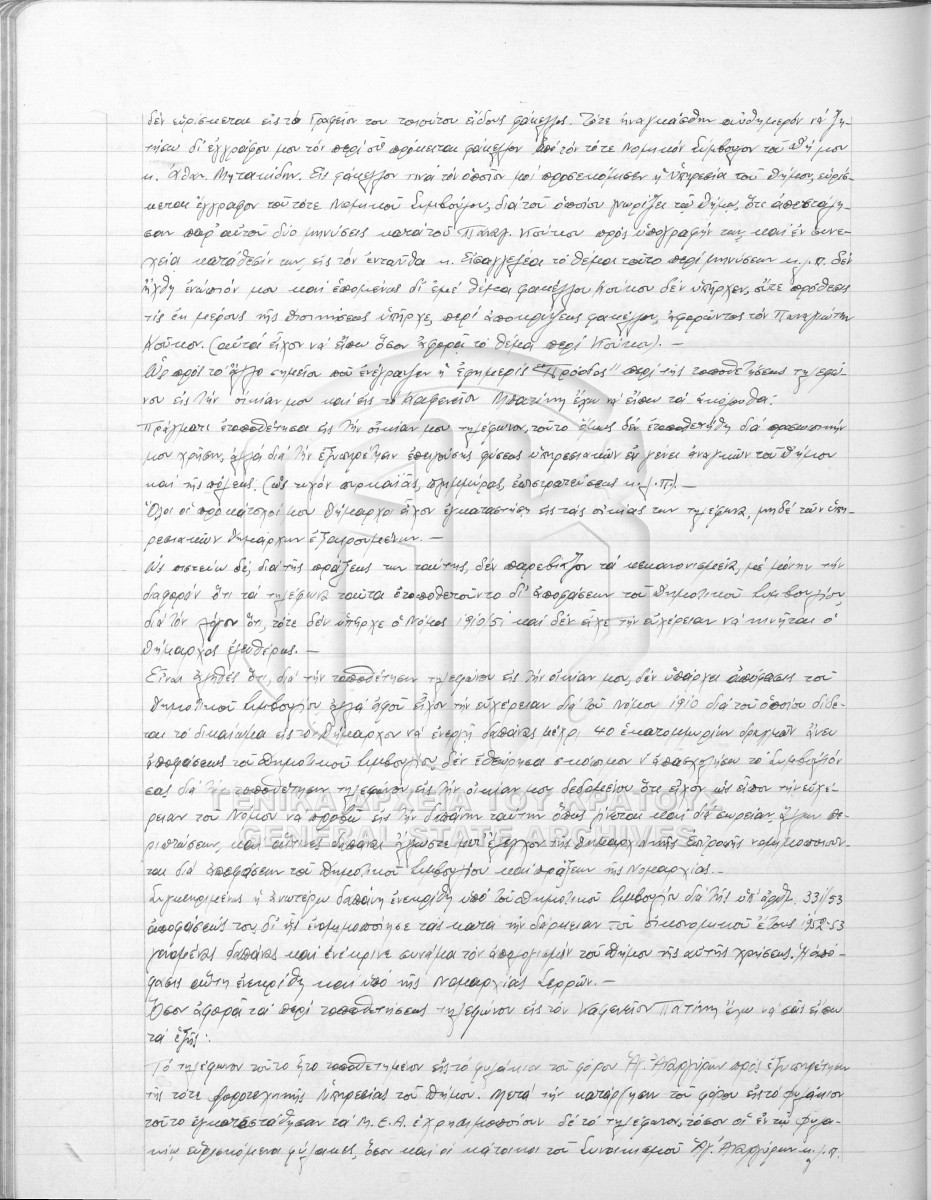 δέν εὑρίσκεται εἰς τό Γραφεῖον του τοιούτου εἴδους φάκελλος. Τότε ἠναγκάσθην αὐθημερόν νά ζη-
τήσω δι' ἐγγράφου μου τόν περί οὗ πρόκειται φάκελλον ἀπό τόν τότε Νομικόν Σύμβουλον τοῦ Δήμου
κ. Ἀθαν. Μητακίδην. Εἰς φάκελλον τινά τόν ὁποῖον μοί προσεκόμισεν ἡ Ὑπηρεσία τοῦ Δήμου, εὑρίσ-
κεται ἔγγραφον τοῦ τότε Νομικοῦ Συμβούλου, διά τοῦ ὁποίου γνωρίζει τῷ Δήμῳ, ὅτι ἀπεστάλη-
σαν παρ' αὐτοῦ δύο μηνύσεις κατά τοῦ Παναγ. Κούκου πρός ὑπογραφήν των, καί ἐν συνε-
χείᾳ κατάθεσίν των, εἰς τόν ἐνταῦθα κ. Εἰσαγγελέα τό θέμα τοῦτο περί μηνύσεων κ.λ.π. δέν
ἤχθη ἐνώπιόν μου καί ἑπομένως δι' ἐμέ θέμα φακέλλου Κούκου δέν ὑπῆρχεν, οὔτε πρόθεσις
τις ἐκ μέρους τῆς Διοικήσεως ὑπῆρχε, περί ἀποκρύψεως φακέλλου, ἀφορῶντος τόν Παναγιώτην
Κοῦκον. (αὐτά εἶχον νά εἴπω ὅσον ἀφορᾷ τό θέμα περί Κούκου). —
Ὡς πρός τό ἄλλο σημεῖον πού ἀνέγραψεν ἡ ἐφημερίς "Πρόοδος" περί τῆς τοποθετήσεως τηλεφώ-
νου εἰς τήν οἰκίαν μου καί εἰς τό Καφενεῖον Μπατίνη ἔχω νά εἴπω τά ἀκόλουθα:
Πράγματι ἐτοποθέτησα εἰς τήν οἰκίαν μου τηλέφωνον, τοῦτο ὅμως δέν ἐτοποθετήθη διά προσωπικήν
μου χρῆσιν, ἀλλά διά τήν ἐξυπηρέτησιν ἐπειγούσης φύσεως ὑπηρεσιακῶν ἐν γένει ἀναγκῶν τοῦ Δήμου
καί τῆς πόλεως. (ὡς τυχόν πυρκαϊᾶς, πλημμύρας, ἐπιστρατεύσεως κ.λ.π.) —
Ὅλοι οἱ προκάτοχοί μου Δήμαρχοι εἶχον ἐγκαταστήσῃ εἰς τάς οἰκίας των τηλέφωνα, μηδέ τῶν ὑπη-
ρεσιακῶν Δημάρχων ἐξαιρουμένων. —
Ὡς πιστεύω δέ, διά τῆς πράξεώς των ταύτης, δέν παρεβίαζον τά κεκανονισμένα, μέ μόνην τήν
διαφοράν ὅτι τά τηλέφωνα ταῦτα ἐτοποθετοῦντο δι' ἀποφάσεων τοῦ Δημοτικοῦ Συμβουλίου,
διά τόν λόγον ὅτι, τότε δέν ὑπῆρχε ὁ Νόμος 1910/51 καί δέν εἶχε τήν εὐχέρειαν νά κινῆται ὁ
Δήμαρχος ἐλευθέρως. —
Εἶναι ἀληθές ὅτι, διά τήν τοποθέτησιν τηλεφώνου εἰς τήν οἰκίαν μου, δέν ὑπάρχει ἀπόφασις τοῦ
Δημοτικοῦ Συμβουλίου, ἀλλά ἀφοῦ εἶχον τήν εὐχέρειαν διά τοῦ Νόμου 1910 διά τοῦ ὁποίου δίδε-
ται τό δικαίωμα εἰς τόν Δήμαρχον νά ἐνεργῇ δαπάνας μέχρι 40 ἑκατομμυρίων δραχμῶν ἄνευ
ἀποφάσεως τοῦ Δημοτικοῦ Συμβουλίου, δέν ἐθεώρησα σκόπιμον ν' ἀπασχολήσω τό Συμβούλιόν
σας διά τήν τοποθέτησιν τηλεφώνου εἰς τήν οἰκίαν μου, δεδομένου ὅτι εἶχον, ὡς εἶπον τήν εὐχέ-
ρειαν τοῦ Νόμου νά προβῶ εἰς τήν δαπάνην ταύτην ὅπως γίνεται καί διά σωρείαν ἄλλων πε-
ριπτώσεων, καί αὗται αἱ δαπάναι ἄλλωστε μετ' ἔλεγχον τῆς Δημαρχιακῆς Ἐπιτροπῆς νομιμοποιοῦν-
ται διά ἀποφάσεων τοῦ Δημοτικοῦ Συμβουλίου καί πράξεων τῆς Νομαρχίας. —
Συγκεκριμένως ἡ ἀνωτέρω δαπάνη ἐνεκρίθη ὑπό τοῦ Δημοτικοῦ Συμβουλίου διά τῆς ὑπ' ἀριθ. 331/53
ἀποφάσεώς του, δι' ἧς ἐνομιμοποίησε τάς κατά τήν διάρκειαν τοῦ οἰκονομικοῦ ἔτους 1952-53
γενομένας δαπάνας καί ἐνέκρινε συνάμα τόν ἀπολογισμόν τοῦ Δήμου τῆς αὐτῆς χρήσεως. Ἡ ἀπό-
φασις αὕτη ἐνεκρίθη καί ὑπό τῆς Νομαρχίας Σερρῶν. —
Ὅσον ἀφορᾷ τά περί τοποθετήσεως τηλεφώνου εἰς τόν Καφενεῖον Πατίνη ἔχω νά σᾶς εἴπω
τά ἑξῆς:
Τό τηλέφωνον τοῦτο ἦτο τοποθετημένον εἰς τό φυλάκιον τοῦ φόρου Ἁγ. Ἀναργύρων πρός ἐξυπηρέτησιν
τῆς τότε φοροτεχνικῆς Ὑπηρεσίας τοῦ Δήμου. Μετά τήν κατάργησιν τοῦ φόρου εἰς τό φυλάκιον
τοῦτο ἐγκατεστάθησαν τά Μ.Ε.Α. ἐχρησιμοποίουν δέ τό τηλέφωνον, τόσον οἱ ἐν τῷ φυλα-
κίῳ εὑρισκόμενοι φύλακες, ὅσον καί οἱ κάτοικοι τοῦ Συνοικισμοῦ Ἁγ. Ἀναργύρων κ.λ.π.
ΓΕΝΙΚΑ ΑΡΧΕΙΑ ΤΟΥ ΚΡΑΤΟΥΣ
GENERAL STATE ARCHIVES